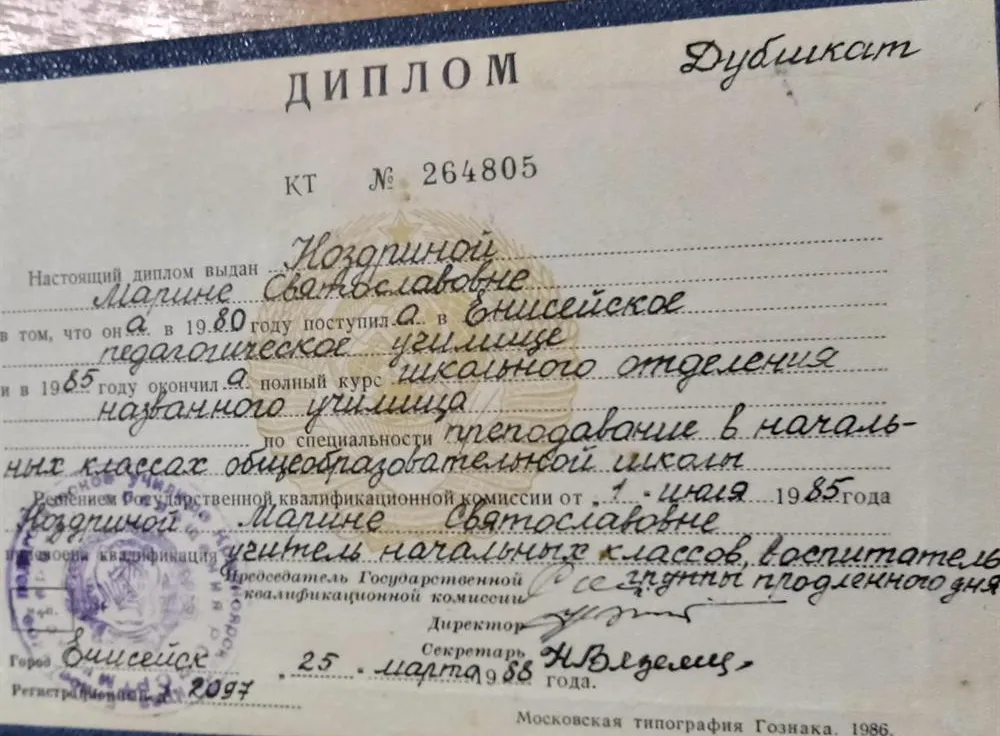 ДИПЛОМ
Дубликат
КТ № 264805
Настоящий диплом выдан Ноздриной
Марине Святославовне
в том, что она в 1980 году поступила в Енисейское
педагогическое училище
и в 1985 году окончила полный курс школьного отделения
названного училища
по специальности преподавание в началь-
ных классах общеобразовательной школы
Решением Государственной квалификационной комиссии от 1 июля 1985 года
Ноздриной Марине Святославовне
присвоена квалификация учитель начальных классов, воспитатель
группы продленного дня
Председатель Государственной
квалификационной комиссии
Директор
Секретарь
Город Енисейск 25 марта 1988 года.
Регистрационный № 2097
Московская типография Гознака. 1986.